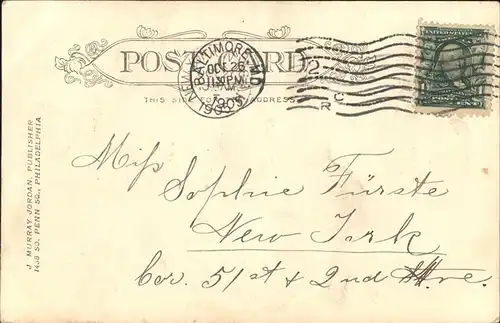 POST CARD
THIS SIDE FOR ADDRESS
BALTIMORE, MD.
OCT 26
PM
1905
UNITED STATES
POSTAGE
J. MURRAY JORDAN, PUBLISHER
1438 SO. PENN SQ., PHILADELPHIA
Miss Sophie Fürste
New York
Cor. 51st & 2nd Ave.